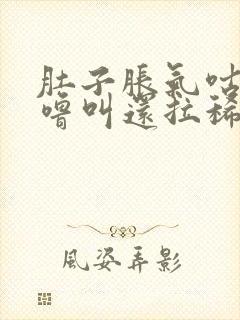 肚子脹氣咕
嚕叫還拉稀
風姿弄影